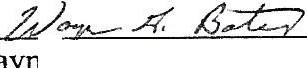 Wayne G. Bates
Wayn